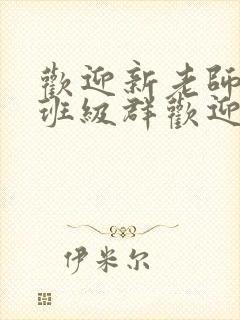 歡迎新老師
班級群歡迎
伊米尔